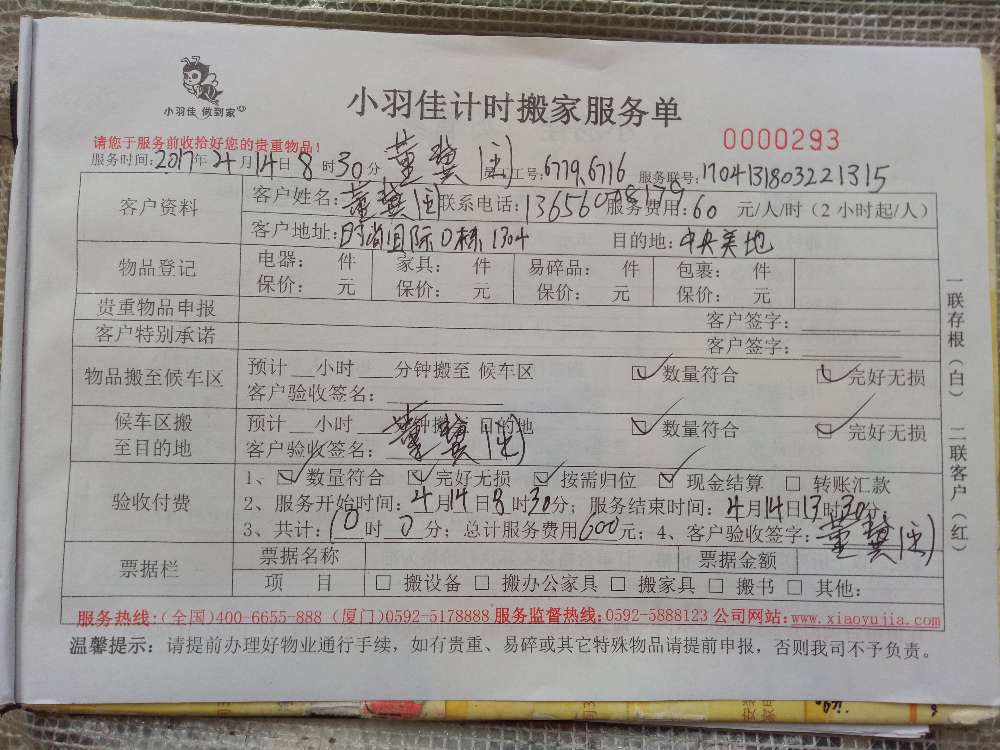 小羽佳 做到家
小羽佳计时搬家服务单
0000293
请您于服务前收拾好您的贵重物品！
服务时间：2017年4月14日8时30分 员工号：6779、6716 服务联号：170413180322 1315
客户资料 客户姓名： 联系电话： 服务费用：60 元/人/时（2 小时起/人）
客户地址： 国际D栋1304 目的地：中央美地
物品登记 电器： 件 家具： 件 易碎品： 件 包裹： 件
保价： 元 保价： 元 保价： 元 保价： 元
贵重物品申报 客户签字：
客户特别承诺 客户签字：
物品搬至候车区 预计 小时 分钟搬至 候车区 ☑数量符合 ☑完好无损
客户验收签名：
候车区搬至目的地 预计 小时 分钟搬至 目的地 ☑数量符合 ☑完好无损
客户验收签名：
验收付费 1、☑数量符合 ☑完好无损 ☑按需归位 ☑现金结算 □转账汇款
2、服务开始时间：4月14日8时30分；服务结束时间：4月14日13时30分；
3、共计：10时0分；总计服务费用600元；4、客户验收签字：
票据栏 票据名称 票据金额
项 目 □搬设备 □搬办公家具 □搬家具 □搬书 □其他：
服务热线：(全国)400-6655-888 (厦门)0592-5178888 服务监督热线：0592-5888123 公司网站：www.xiaoyujia.com
温馨提示：请提前办理好物业通行手续，如有贵重、易碎或其它特殊物品请提前申报，否则我司不予负责。
一联存根（白） 二联客户（红）